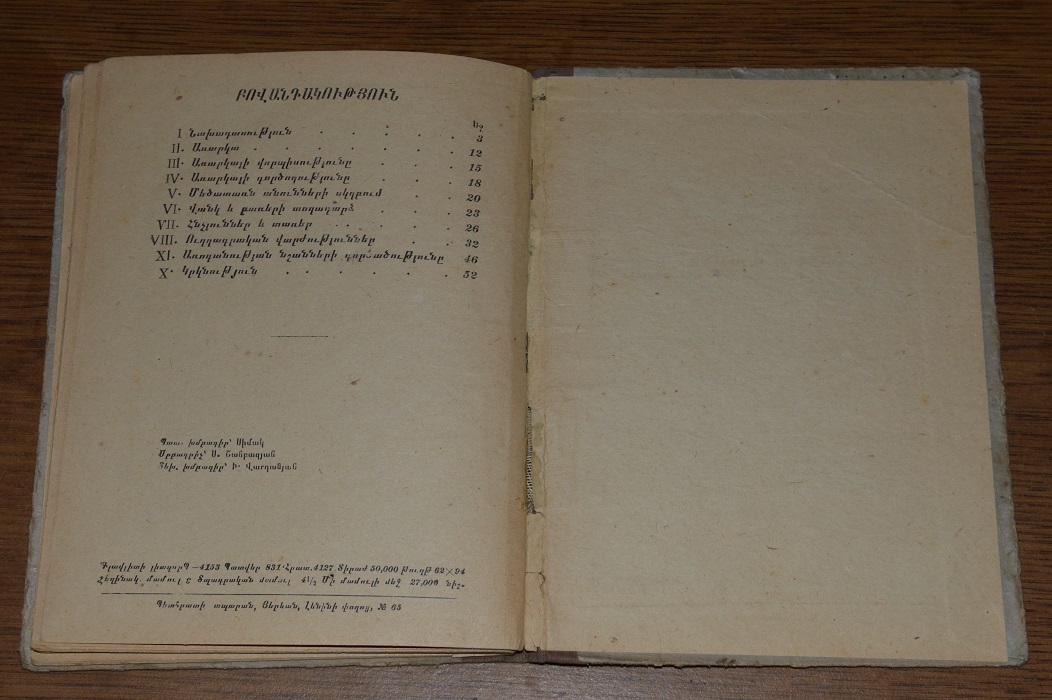 ԲՈՎԱՆԴԱԿՈՒԹՅՈՒՆ
Եջ
I Նախադասություն . . . . . 3
II. Առարկա . . . . . . . 12
III. Առարկայի վորպիսությունը . . . 15
IV. Առարկայի գործողությունը . . . 18
V. Մեծատառն անունների սկզբում . . . 20
VI. Վանկ և բառերի տողադարձ . . . 23
VII. Հնչյուններ և տառեր . . . . . 26
VIII. Ուղղագրական վարժություններ . . 32
XI. Առոգանության նշանների գործածությունը 46
X. Կրկնություն . . . . . . 52
Պատ. խմբագիր՝ Սիմակ
Սրբագրիչ՝ Ս. Շահբազյան
Տեխ. խմբագիր՝ Ի. Վարդանյան
Գլավլիտի լիազոր —4153 Պատվեր 831. Հրատ. 4127. Տիրաժ 50,000 Թուղթ 62×94
մամուլ Տպագրական մամուլ 4½ Մի մամուլի մեջ 27,000 նիշ.
Պետհրատի տպարան, Յերևան, Լենինի փողոց, № 65